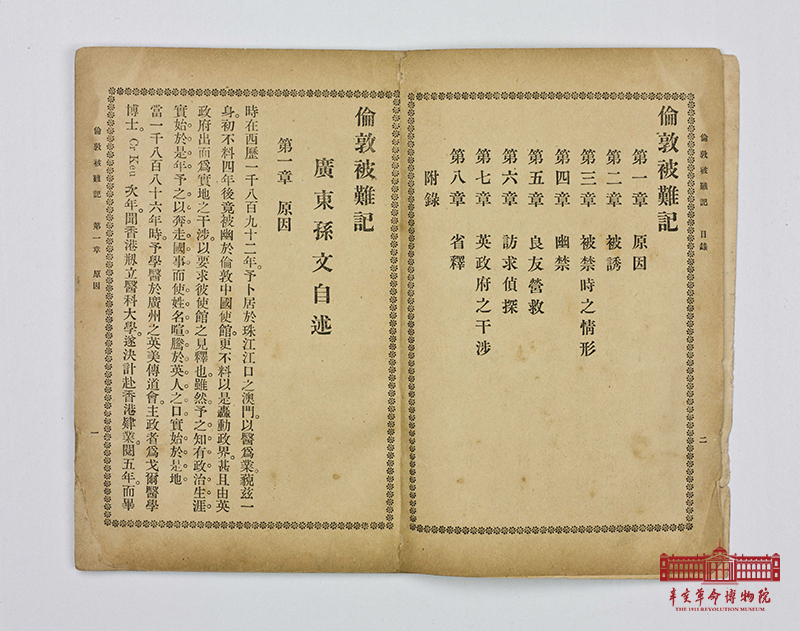 倫敦被難記 目錄 二
倫敦被難記
第一章 原因
第二章 被誘
第三章 被禁時之情形
第四章 幽禁
第五章 良友營救
第六章 訪求偵探
第七章 英政府之干涉
第八章 省釋
附錄
倫敦被難記
廣東孫文自述
第一章 原因
時在西歷一千八百九十二年。予卜居於珠江江口之澳門。以醫爲業。藐茲一
身。初不料四年後竟被幽於倫敦中國使館。更不料以是轟動政界。甚且由英
政府出而爲實地之干涉。以要求彼使館之見釋也。雖然。予之知有政治生涯。
實始於是年。予之以奔走國事而使姓名喧騰於英人之口。實始於是地。
當一千八百八十六年時。予學醫於廣州之英美傳道會。主政者爲戈爾醫學
博士。Cr Keu 次年。聞香港刱立醫科大學。遂決計赴香港肄業。閱五年。而畢
倫敦被難記 第一章 原因 一
辛亥革命博物院
THE 1911 REVOLUTION MUSEUM